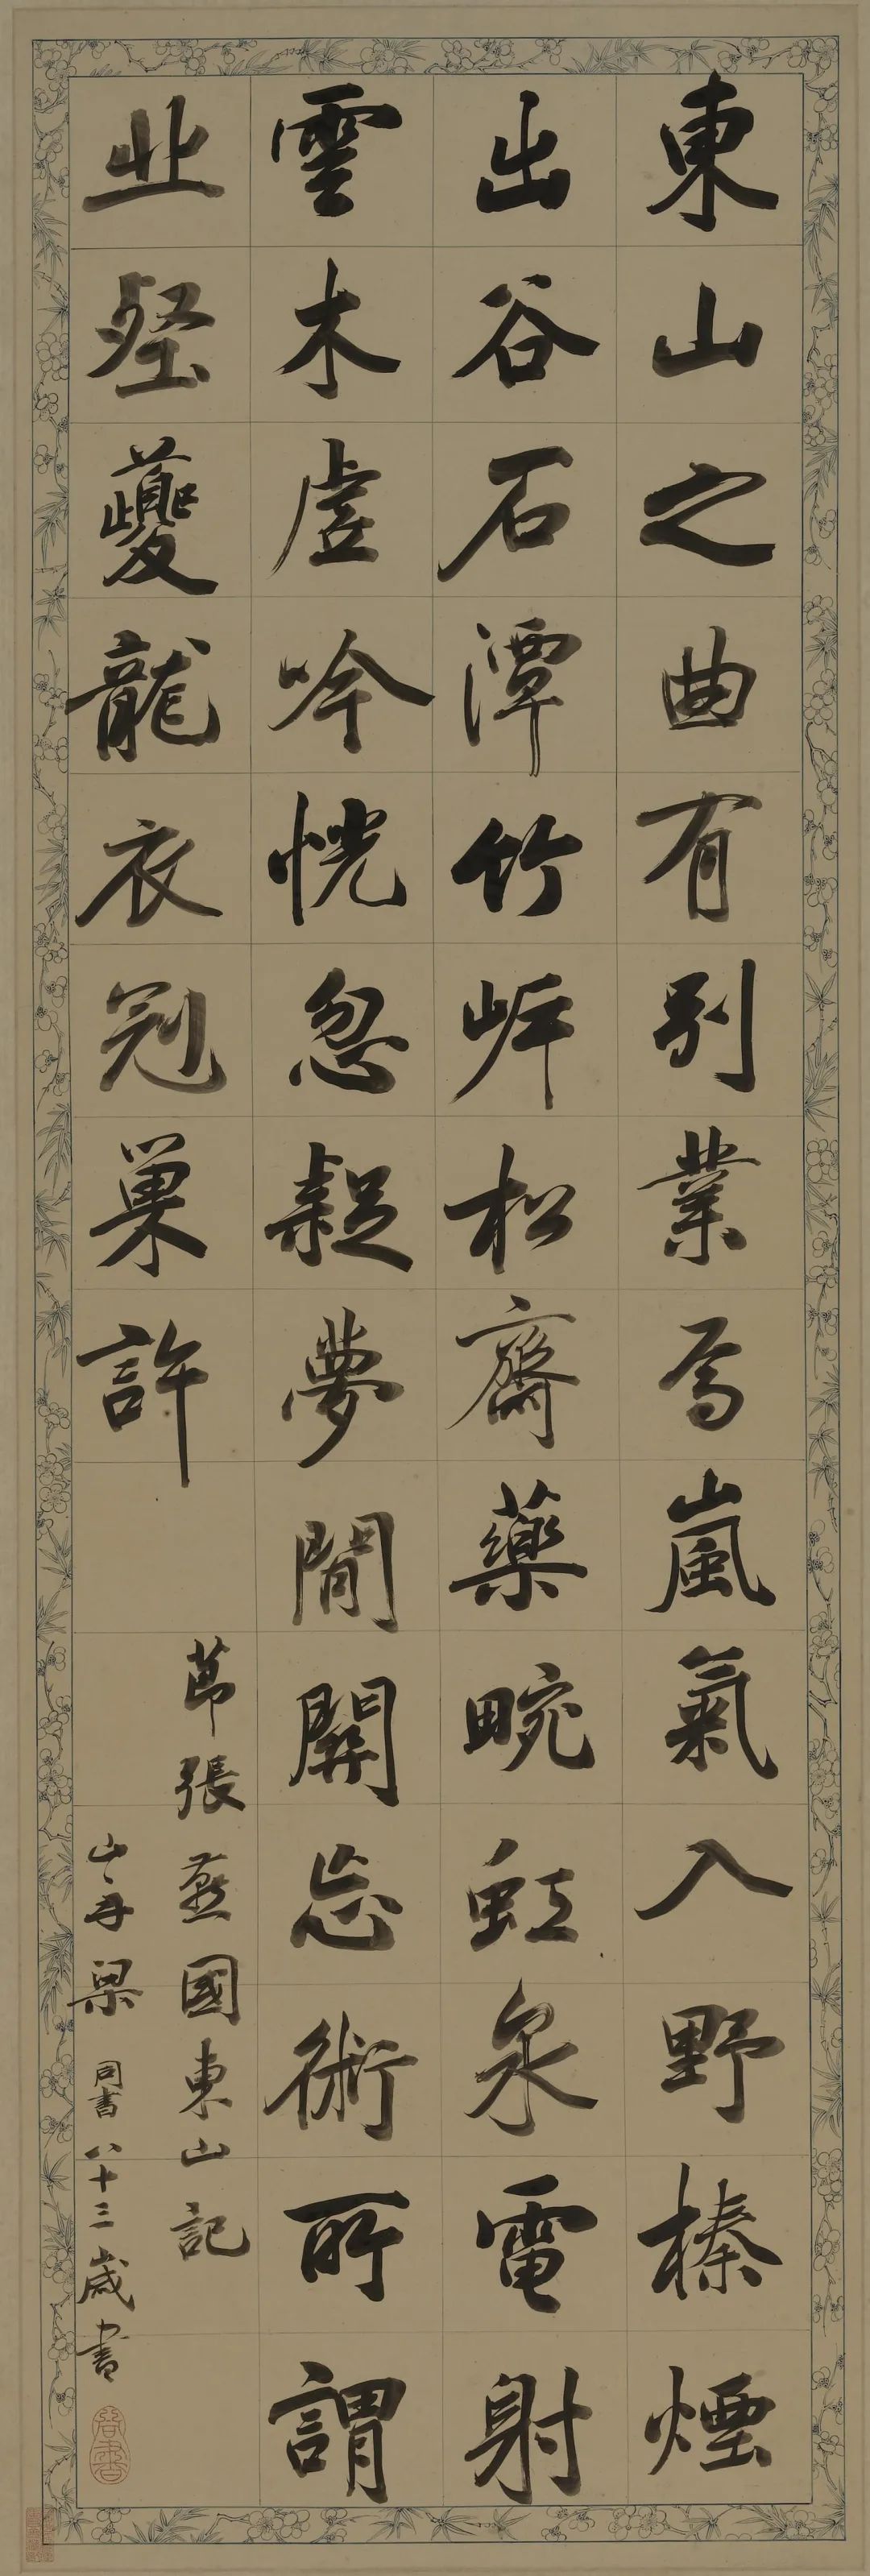 東山之曲有別業焉嵐氣入野榛煙
出谷石潭竹岍松齋藥畹虹泉電射
雲木虛吟恍忽疑夢閒關忘術所謂
丘壑夔龍衣冠巢許
節張燕國東山記
山舟梁同書八十三歲書